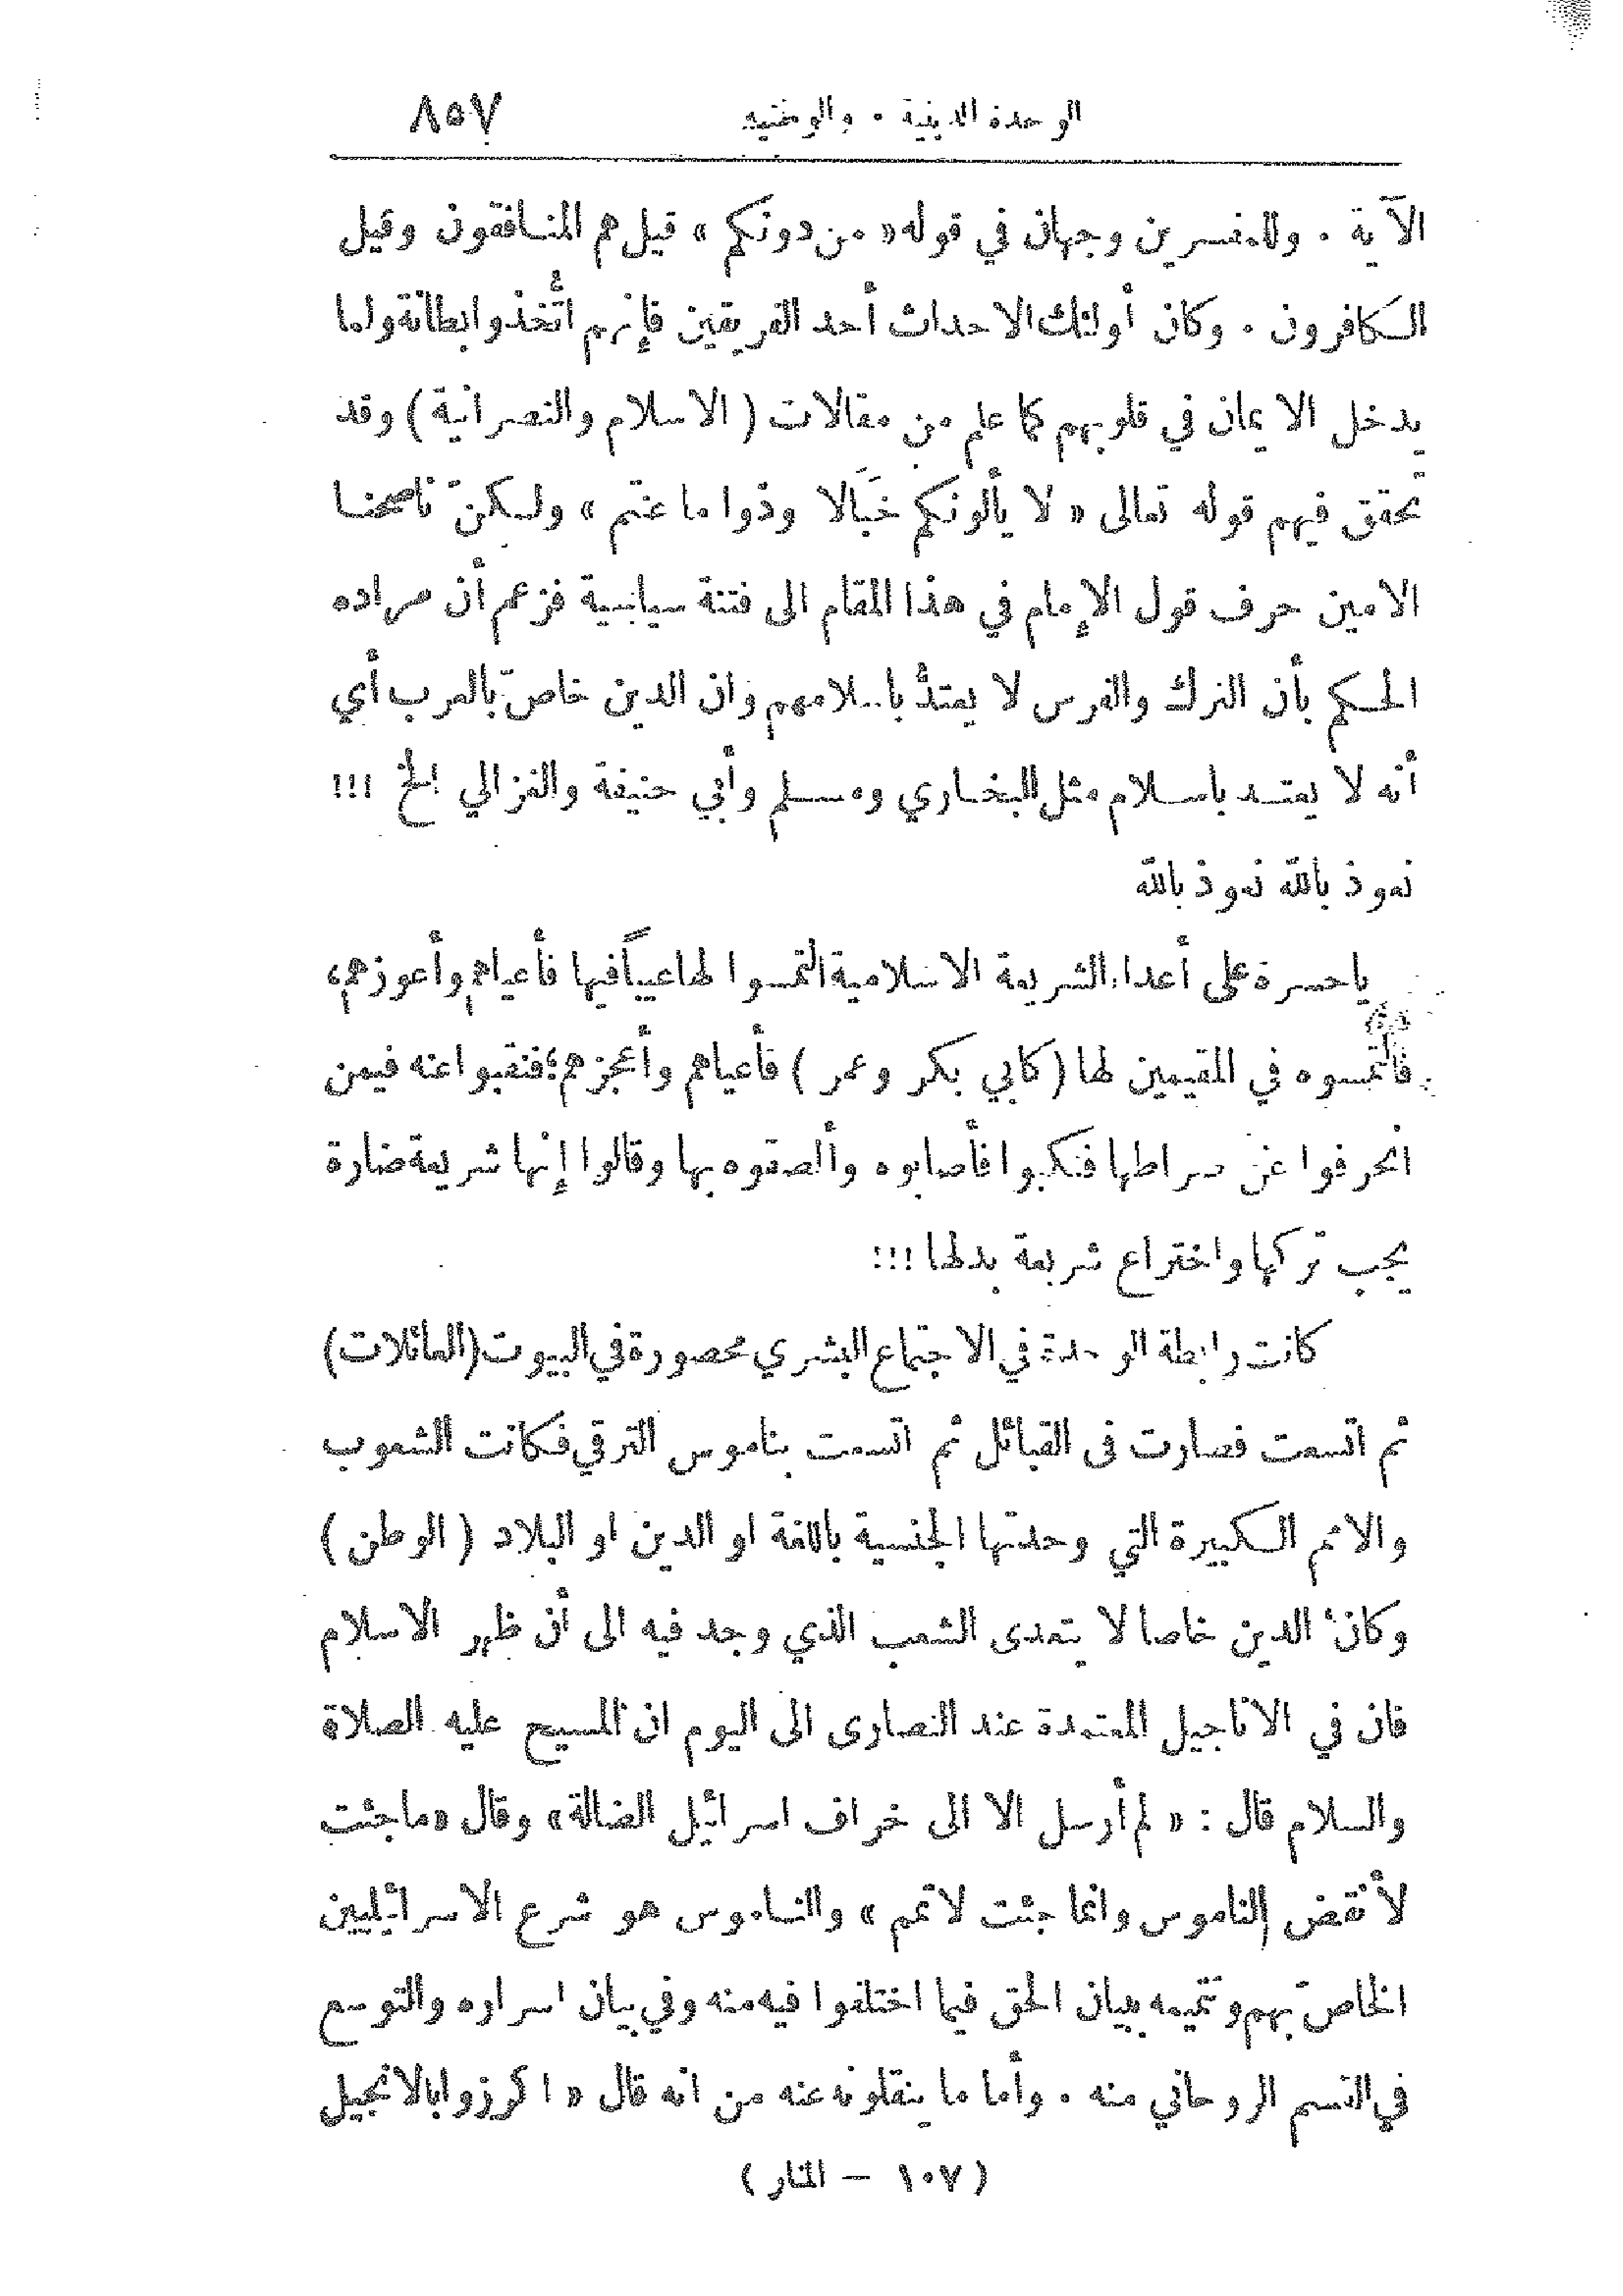 الوحدة الدينية . والوطنية ٨٥٧
الآية . وللمفسرين وجهان في قوله « من دونكم » قيل هم المنافقون وقيل
الكافرون . وكان أولئك الاحداث أحد الفريقين فإنهم اتُّخذوا بطانة ولما
يدخل الايمان في قلوبهم كما علم من مقالات ( الاسلام والنصرانية ) وقد
تحقق فيهم قوله تعالى « لا يألونكم خَبَالا ودّوا ما عنتم » ولكنّ ناصحنا
الامين حرف قول الإمام في هذا المقام الى فتنة سياسية فزعم أن مراده
الحكم بأن الترك والفرس لا يعتدُّ باسلامهم وان الدين خاصّ بالعرب أي
أنه لا يعتد باسلام مثل البخاري ومسلم وأبي حنيفة والغزالي الخ !!!
نعوذ بالله نعوذ بالله
ياحسرة على أعداء الشريعة الاسلامية التمسوا لها عيباً فيها فأعياهم وأعوزهم،
فالتمسوه في المقيمين لها ( كابي بكر وعمر ) فأعياهم وأعجزهم؛ فنقبوا عنه فيمن
انحرفوا عن صراطها فنكبوا فأصابوه وألصقوه بها وقالوا إنها شريعة ضارة
يجب تركها واختراع شريعة بدلها !!!
كانت رابطة الوحدة في الاجتماع البشري محصورة في البيوت (العائلات)
ثم اتسعت فصارت فى القبائل ثم اتسعت بناموس الترقي فكانت الشعوب
والامم الكبيرة التي وحدتها الجنسية باللغة او الدين او البلاد ( الوطن )
وكان الدين خاصا لا يتعدى الشعب الذي وجد فيه الى أن ظهر الاسلام
فان في الاناجيل المعتمدة عند النصارى الى اليوم ان المسيح عليه الصلاة
والسلام قال : « لم أرسل الا الى خراف اسرائيل الضالة » وقال « ما جئت
لأنقض الناموس وانما جئت لاتمم » والناموس هو شرع الاسرائيليين
الخاصّ بهم وتتميمه ببيان الحق فيما اختلفوا فيه منه وفي بيان اسراره والتوسع
في القسم الروحاني منه . وأما ما ينقلونه عنه من انه قال « اكرزوا بالانجيل
( ١٠٧ — المنار )